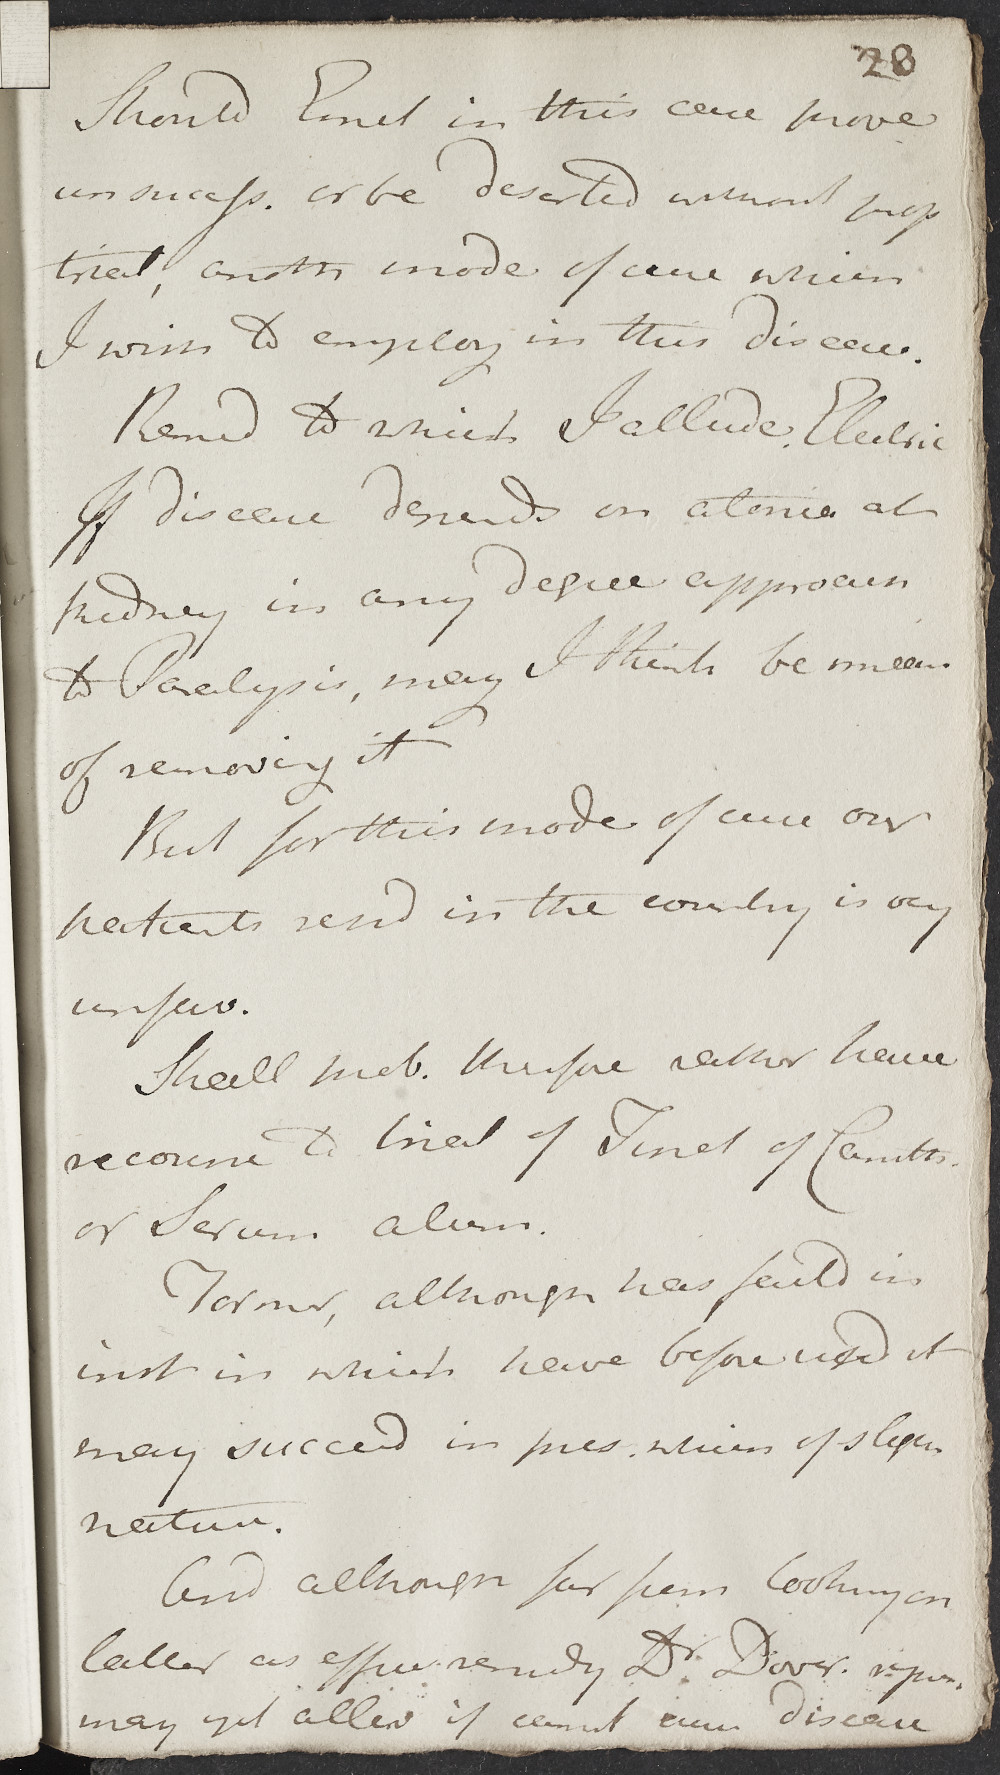 28
Should Emet in this case prove
unsucess. or be deserted without prop
trial, anothr mode of cure which
I wish to employ in this disease.
Remed to which I allude. Electric
If disease depends on atonia at
kidney in any degree approach
to Paralysis, may I think be mean
of removing it
But for this mode of cure our
patients resid in the country is very
unfav.
Shall prob. therefore rather have
recourse to trial of Tinct of Canth.
or Serum alum.
Former, although has faild in
inst in which have before used it
may succeed in pres. which of slight
nature.
And although far from looking on
latter as effec. remedy Dr. Dover.
may yet allev if cannot cure disease